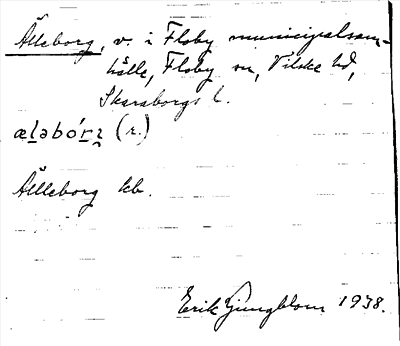 Älleborg, v. i Floby municipalsam-
hälle, Floby sn, Vilske hd,
Skaraborgs l.
æḻəbó́rɪ̯ (r.)
Älleborg kb.
Erik Ljungblom 1938.